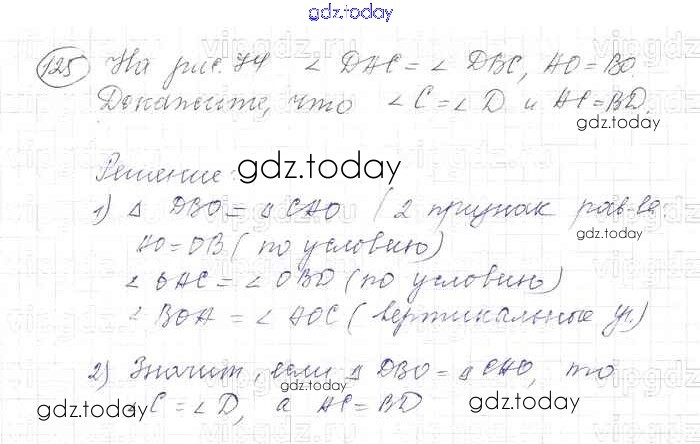 gdz.today
125 На рис. 74 ∠DAC = ∠DBC, AO = BO.
Докажите, что ∠C = ∠D и AC = BD.
gdz.today
Решение:
gdz.today
1) Δ DBO = Δ CAO (2 признак рав-ва
AO = OB (по условию)
∠OAC = ∠OBD (по условию)
∠BOA = ∠AOC (вертикальные уг.)
2) Значит, если Δ DBO = Δ CAO, то
gdz.today
∠C = ∠D, а AC = BD
gdz.today
gdz.today